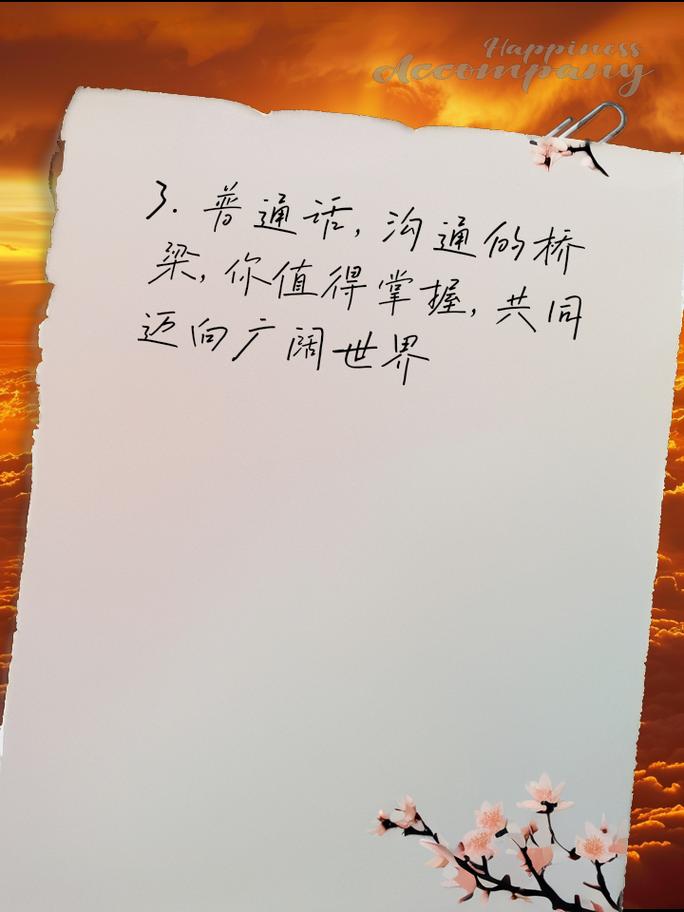 Happiness
Accompany
3. 普通话, 沟通的桥
梁, 你值得掌握, 共同
迈向广阔世界